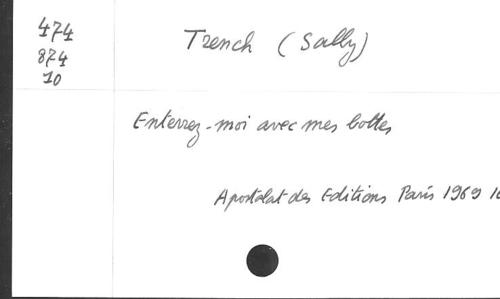 474
874
10
Trench (Sally)
Enterrez-moi avec mes bottes
Apostolat des Editions Paris 1969